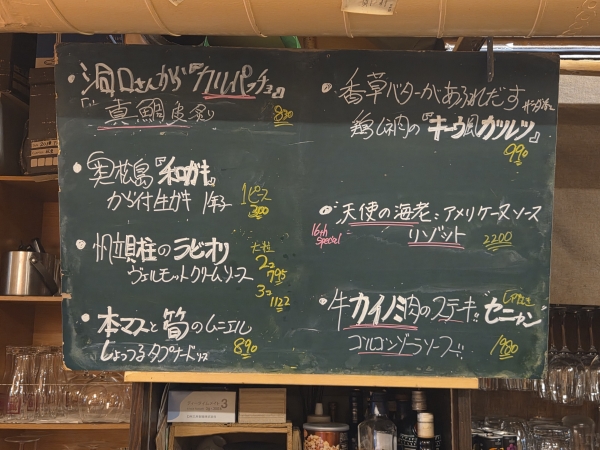 ・洞口さんから『カルパッチョ』
真鯛皮炙り 830
・奥松島『和ガキ』
から付生ガキ 1年子 1ピース
300
・帆立貝柱のラビオリ 大粒
ヴェルモットクリームソース 2コ
795
3コ
1122
・本マスと筍のムニエル
しょっつるタプナードソース 890
・香草バターがあふれだす
鶏ムネ肉の『キーウ風カツレツ』
990
・天使の海老:アメリケーヌソース
16th Special リゾット 2200
・牛カイノミ肉のステーキ"セニャン"
ゴルゴンゾーラソース 1980